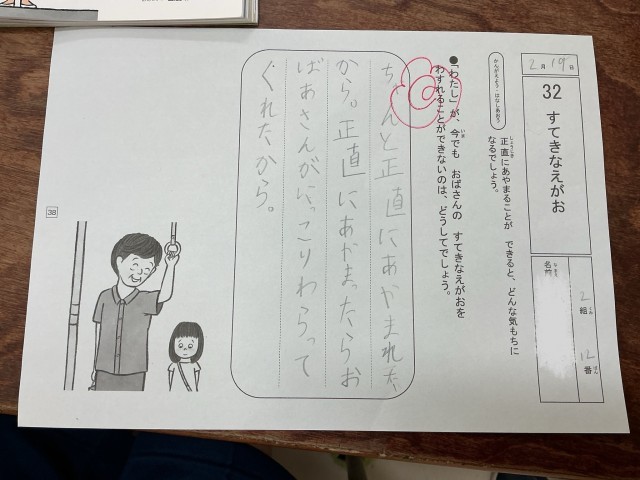 2月19日
32 すてきなえがお
名前
2組
12番
かんがえよう・はなしあおう
正直にあやまることが できると、どんな気もちに
なるでしょう。
●「わたし」が、今でも おばさんの すてきなえがおを
わすれることができないのは、どうしてでしょう。
ちゃんと正直にあやまれた
から。正直にあやまったらお
ばあさんがにっこりわらって
くれたから。
38